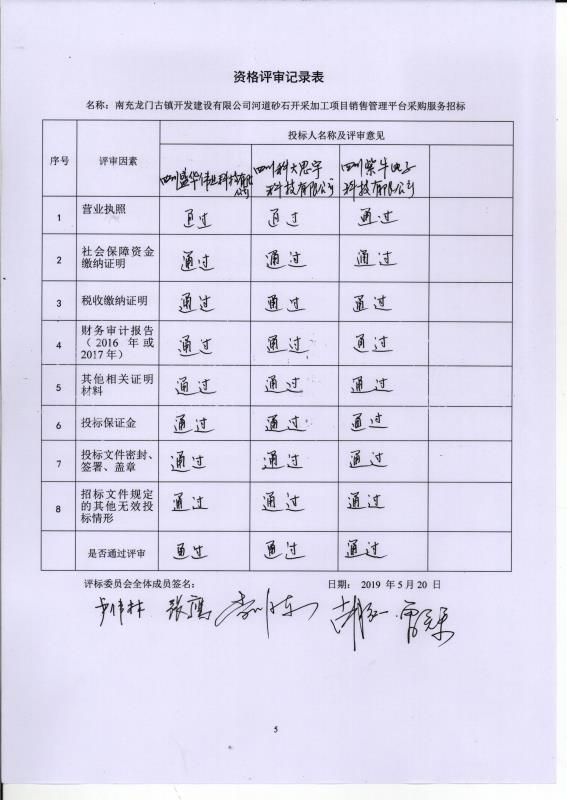 资格评审记录表
名称：南充龙门古镇开发建设有限公司河道砂石开采加工项目销售管理平台采购服务招标
序号 评审因素 投标人名称及评审意见
四川盛华伟业科技有限公司 四川科大思宇科技有限公司 四川紫牛电子科技有限公司
1 营业执照 通过 通过 通过
2 社会保障资金 通过 通过 通过
缴纳证明
3 税收缴纳证明 通过 通过 通过
4 财务审计报告 通过 通过 通过
（2016 年或
2017年）
5 其他相关证明 通过 通过 通过
材料
6 投标保证金 通过 通过 通过
7 投标文件密封、 通过 通过 通过
签署、盖章
8 招标文件规定 通过 通过 通过
的其他无效投
标情形
是否通过评审 通过 通过 通过
评标委员会全体成员签名： 日期： 2019 年 5 月 20 日
张鹰
5